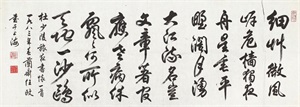 細草微風
岸危檣獨夜
舟星垂平
野闊月湧
大江流名豈
文章著官
應老病休飄
飄何所似
天地一沙鷗
杜少陵旅夜書懷一首
一九八三年
任政
書於上海